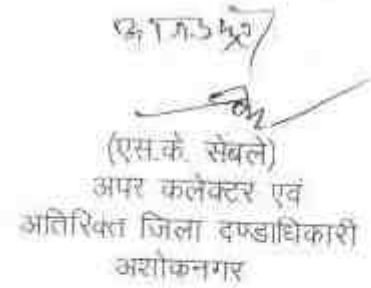 (एस.के. सेबले)
अपर कलेक्टर एवं
अतिरिक्त जिला दण्डाधिकारी
अशोकनगर